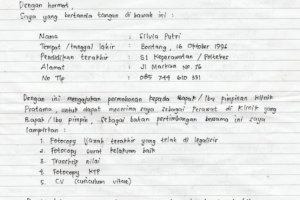 Dengan hormat,
Saya yang bertanda tangan di bawah ini :
Nama : Silvia Putri
Tempat / tanggal lahir : Bontang, 16 Oktober 1996
Pendidikan terakhir : S1 Keperawatan / Poltekes
Alamat : Jl Martran No. 76
No Tlp : 085 344 610 331
Dengan ini mengajukan permohonan kepada Bapak / Ibu pimpinan klinik
Pratama, untuk dapat menerima saya sebagai Perawat di klinik yang
Bapak / Ibu pimpin. Sebagai bahan pertimbangan bersama ini saya
lampirkan :
1. Fotocopy Ijazah terakhir yang telah di legalisir
2. Fotocopy surat kelakuan baik
3. Transkrip nilai
4. Fotocopy KTP
5. CV (curiculum vitae)